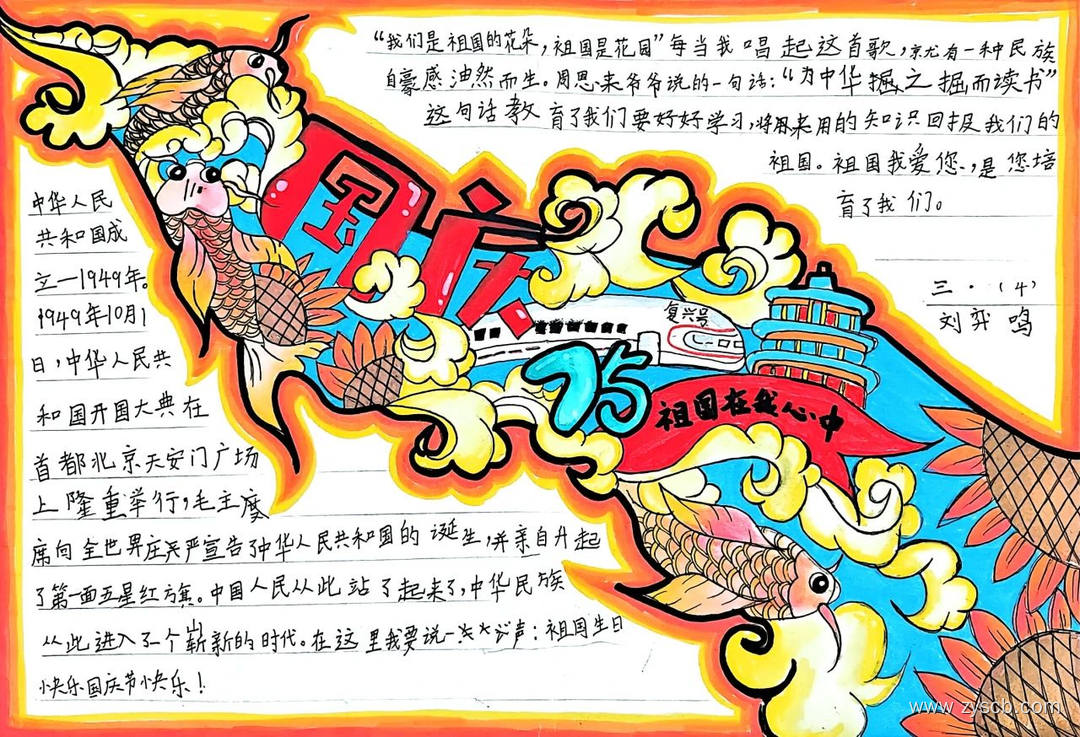 “我们是祖国的花朵，祖国是花园”每当我唱起这首歌，就有一种民族
自豪感油然而生。周恩来爷爷说的一句话：“为中华掘之掘而读书”
这句话教育了我们要好好学习，将来用的知识回报我们的
祖国。祖国我爱您，是您培
育了我们。
三·（4）
刘弈鸣
国庆
复兴号
75
祖国在我心中
中华人民
共和国成
立一1949年。
1949年10月1
日，中华人民共
和国开国大典在
首都北京天安门广场
上隆重举行，毛主
席向全世界庄严宣告了中华人民共和国的诞生，并亲自升起
了第一面五星红旗。中国人民从此站了起来了，中华民族
从此进入了一个崭新的时代。在这里我要说一声：祖国生日
快乐国庆节快乐！
www.zyscb.com